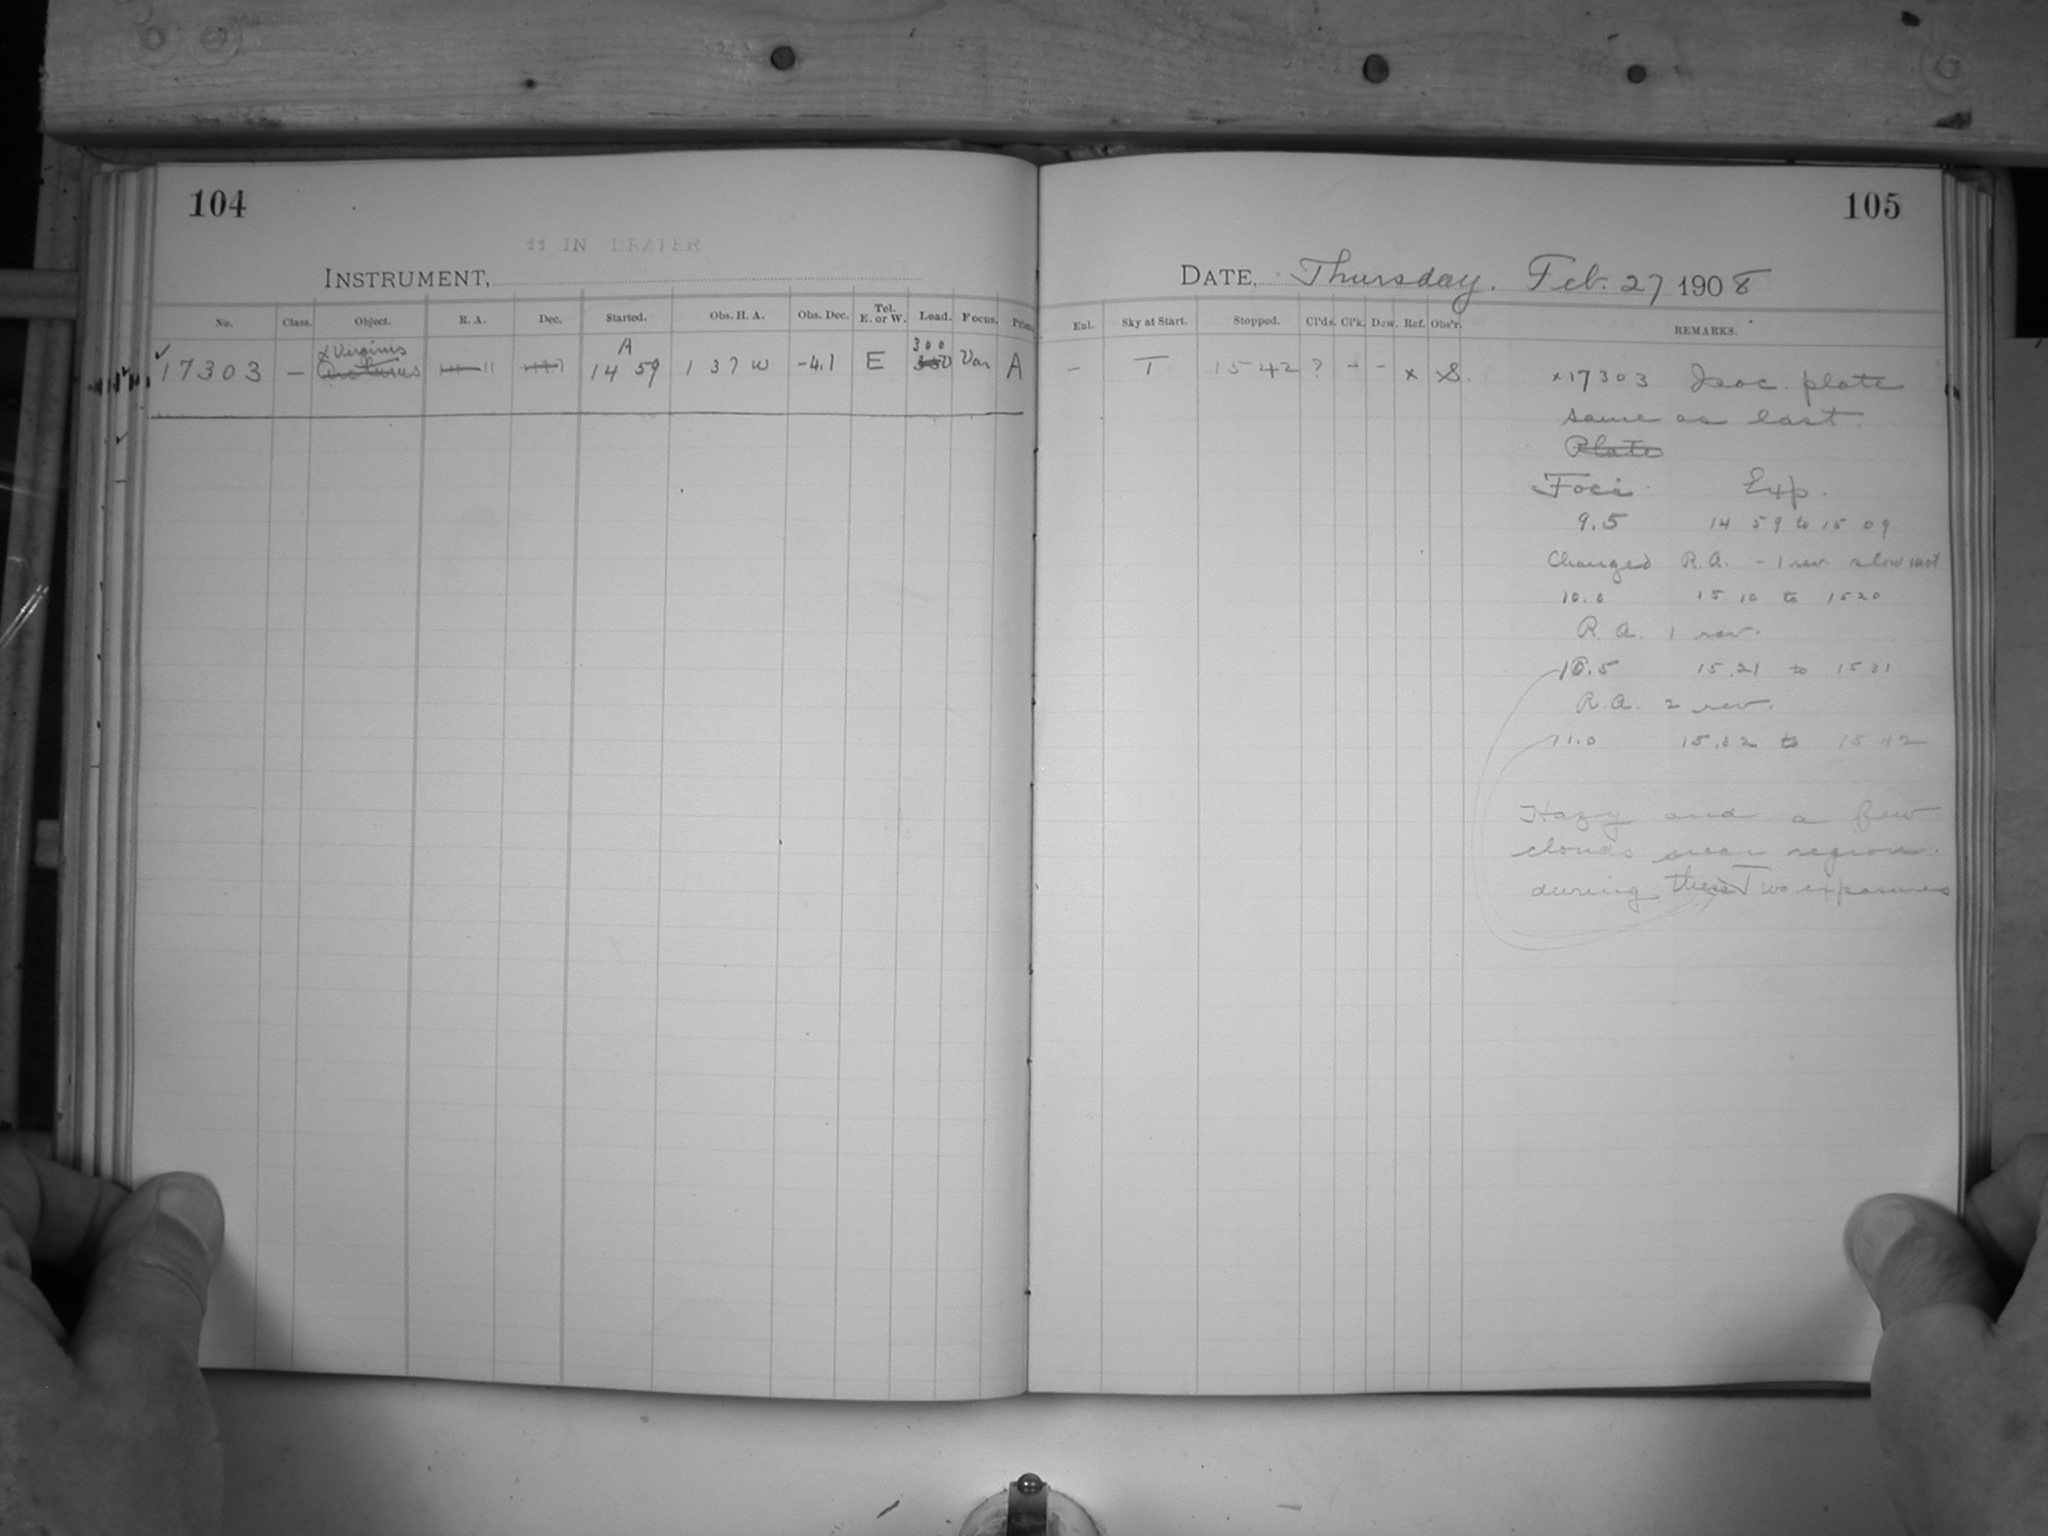 104
11 IN DRAPER
INSTRUMENT,
No. Class. Object. R. A. Dec. Started. Obs. H. A. Obs. Dec. Tel. E. or W. Load. Focus. Prism
✓ 17303 — x Virginis Arcturus 14 11 A 14 59 1 37 W -4.1 E 300 350 Var A
105
DATE, Thursday. Feb. 27 1908
Enl. Sky at Start. Stopped. Cl'ds. Cl'k. Dew. Ref. Obs'r. REMARKS.
– T 15 42 ? – – x xS.
x17303 Isoc. plate
same as last.
Plate
Foci Exp.
9.5 14 59 to 15 09
Changed R.A. – 1 rev. slow mot
10.0 15 10 to 15 20
R.A. 1 rev.
10.5 15.21 to 15 31
R.A. 2 rev.
11.0 15.32 to 15 42
Hazy and a few
clouds near region
during these Two exposures